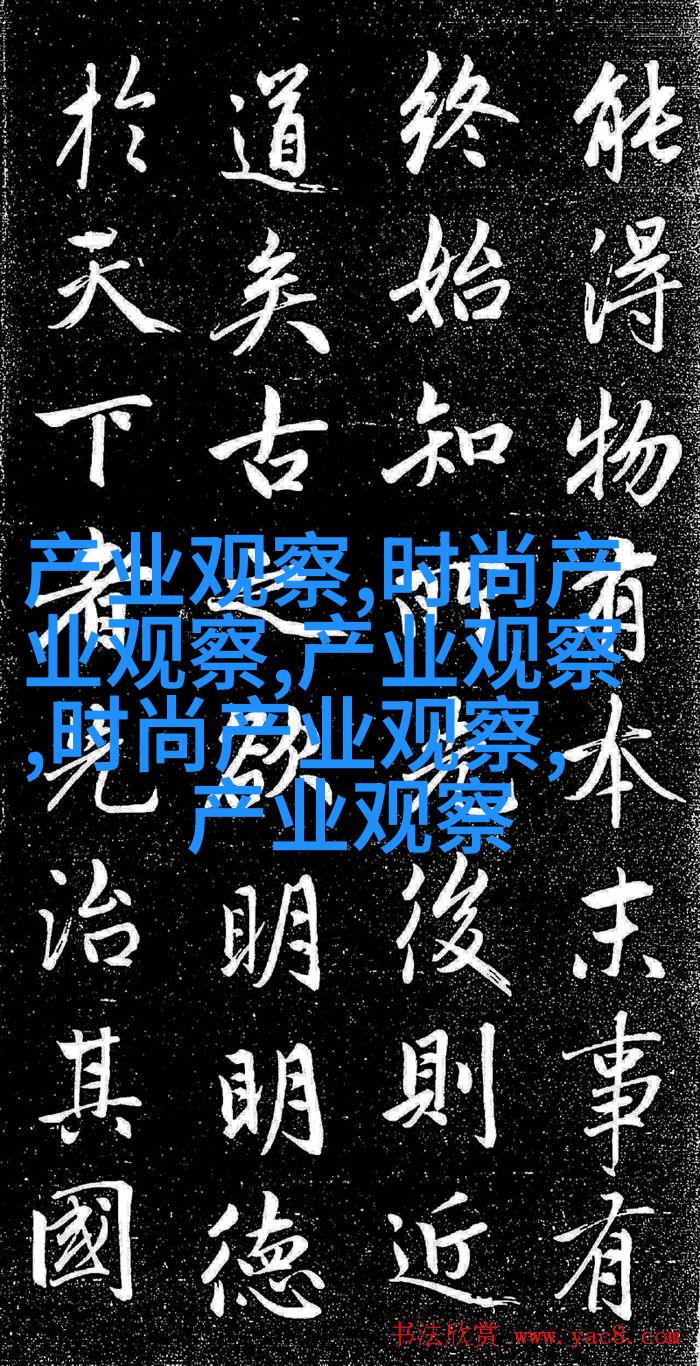 能得物有本末事有
終始知所先後則近
道矣古之欲明明德
於天下者先治其國
产业观察,时尚产
业观察,产业观察
,时尚产业观察,
产业观察
书法欣赏 www.yac8.com